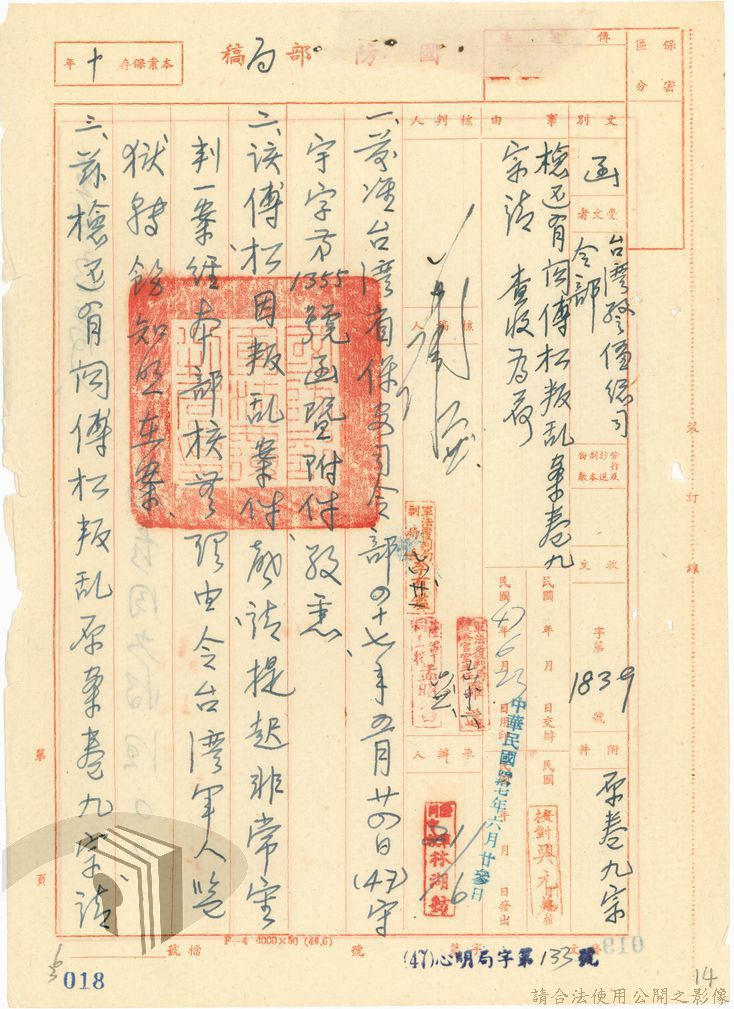 國防部稿
局
本案保存十年
保密區分
文別
函
受文者
台灣警備總司令部
事由
檢还有関傅松叛乱案卷九
宗請 查收為荷
核判人
核稿人
承辦人
分行及抄送副本份數
收文
字第1839號
附件
原卷九宗
民國 年 月 日交辦
民國 年 月 日用印
民國 年 月 日發出
中華民國四七年六月廿參日
校對
一、
台灣省保安司令部四十七年五月廿四日(47)守
宇字第1355號函暨附件敬悉
二、該傅松因叛乱案件聲請提起非常審
判一案經本部核無理由令台灣軍人監
獄轉飭知照在案
三、茲檢还有関傅松叛乱原案卷九宗請
裝訂線
第 頁
F—4 4000×50 (46,6)
檔號
(47)心明局字第133號
018
14
請合法使用公開之影像